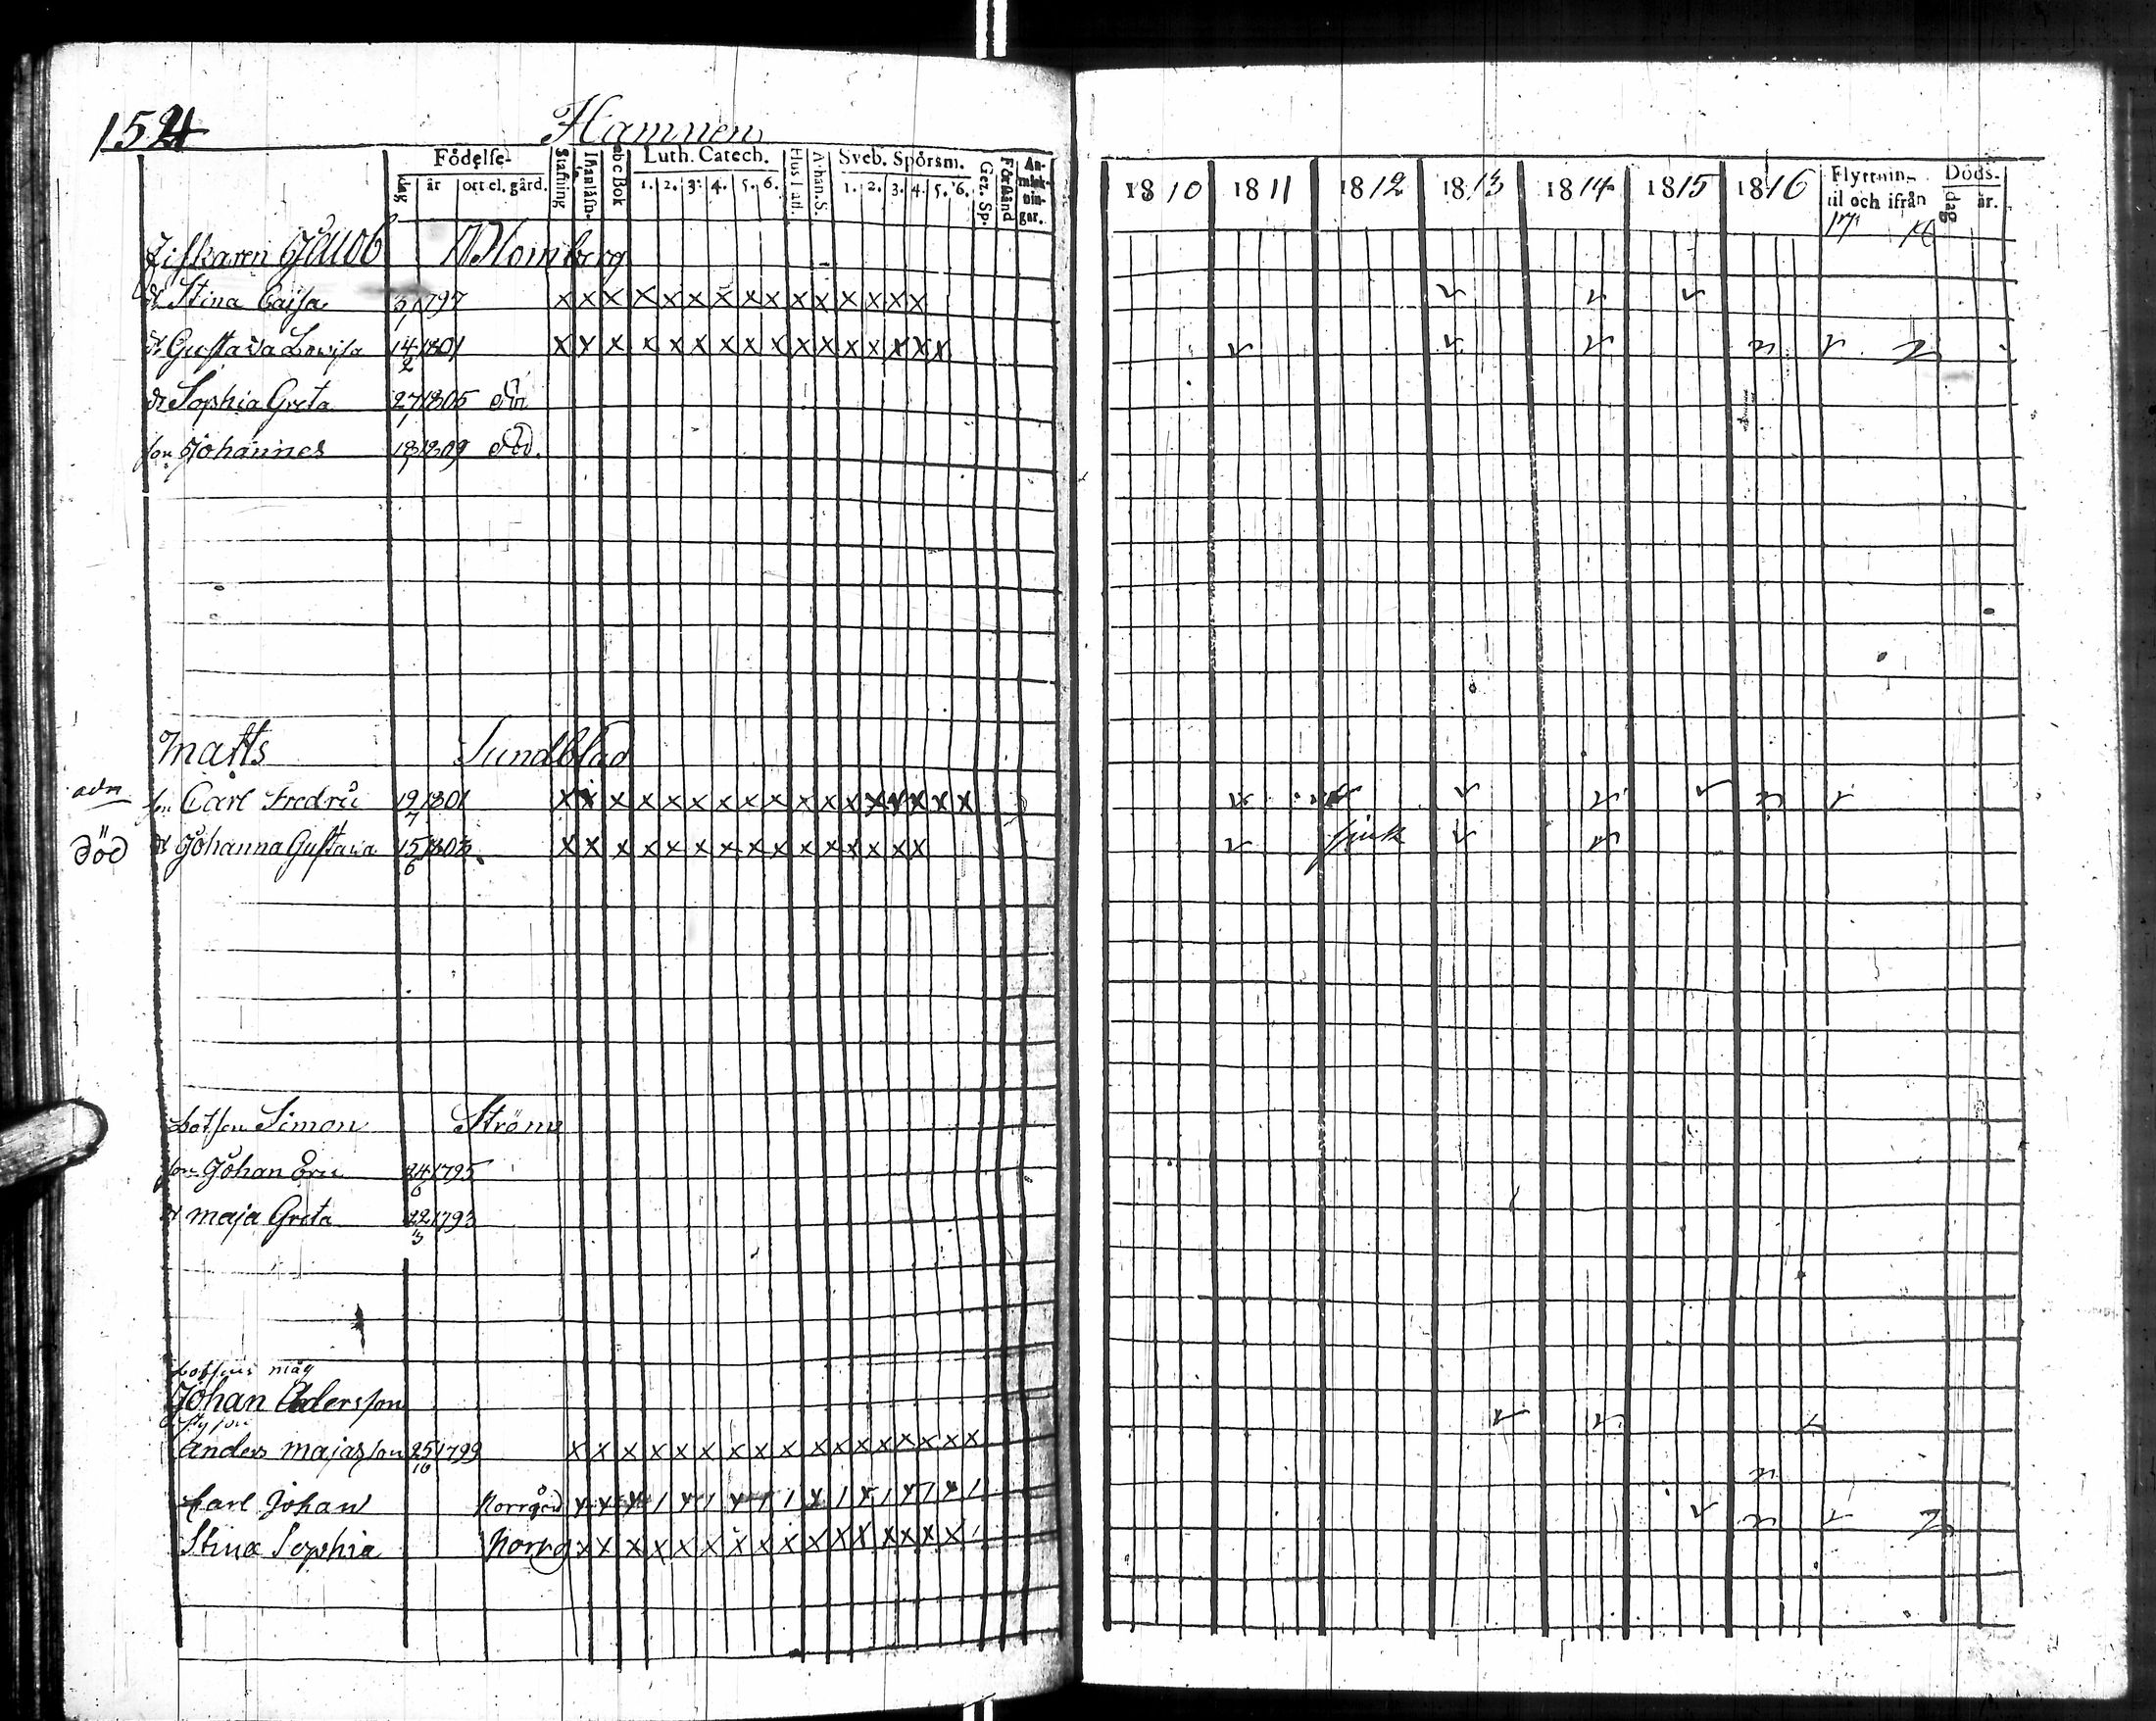 1524 Hamnen
Födelse-
dag år ort el. gård.
Stafning Abc Bok Luth. Catech. 1. 2. 3. 4. 5. 6. Hus Tafl. Athan. S. Sveb. Spörsm. 1. 2. 3. 4. 5. 6. Gez. Sp. Förstånd An-märk-nin-gar.
1810 1811 1812 1813 1814 1815 1816 Flyttnin- til och ifrån Döds- dag år.
17
Fiskaren Jacob Blomberg
dr Stina Caisa 3/1 1797 x x x x x x x x x x x x x x x
dr Gustava Lovisa 14/2 1801 x x x x x x x x x x x x x x x x
dr Sophia Greta 27/1 1805
son Johannes 18/1 1809
Matts Sundblad
adm son Carl Fredric 19/7 1801 x x x x x x x x x x x x x x x x x
död dr Johanna Gustava 15/6 1803 x x x x x x x x x x x x x x x sjuk
Lotsen Simon Ström
son Johan Eric 24/6 1795
dr Maja Greta 22/3 1793
Lotsens måg
Johan Andersson
Anders Majasson 25/10 1799 x x x x x x x x x x x x x x x x x
Carl Johan Norrgård
Stina Sophia Norrg x x x x x x x x x x x x x x x x